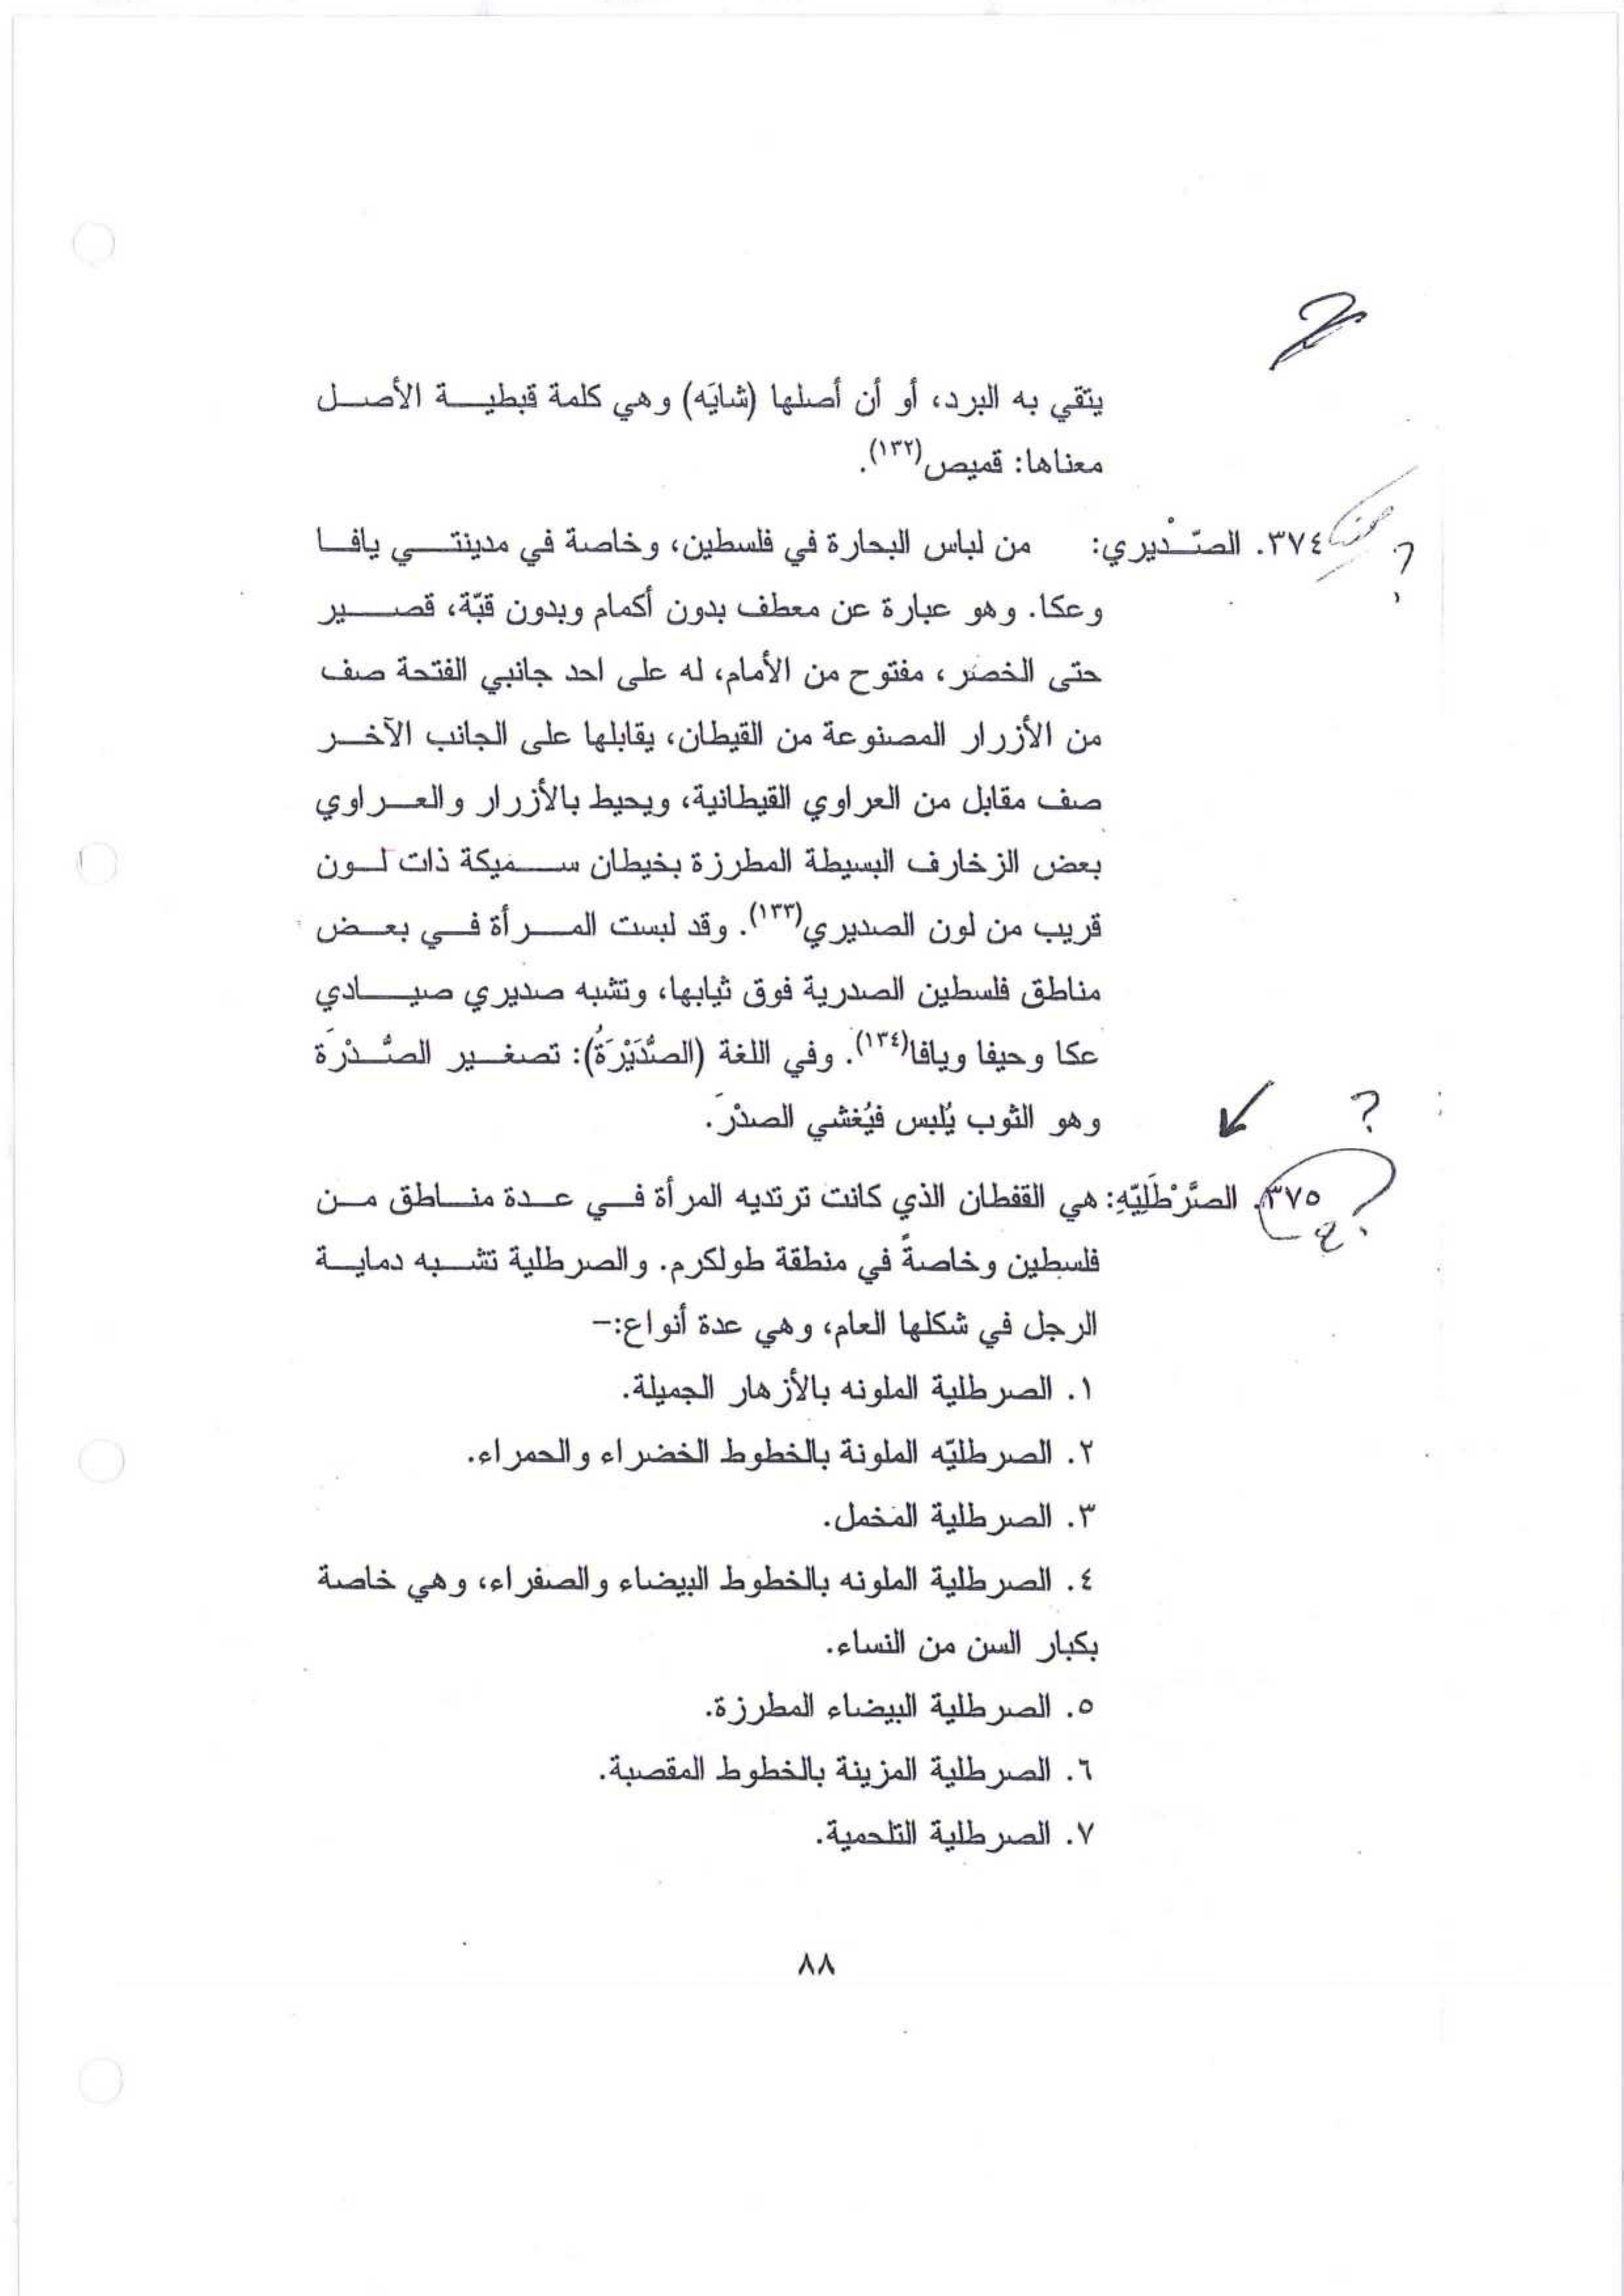 يتقي به البرد، أو أن أصلها (شايَه) وهي كلمة قبطية الأصل
معناها: قميص(١٣٢).
٣٧٤. الصّدْيري: من لباس البحارة في فلسطين، وخاصة في مدينتي يافا
وعكا. وهو عبارة عن معطف بدون أكمام وبدون قبّة، قصير
حتى الخصر، مفتوح من الأمام، له على احد جانبي الفتحة صف
من الأزرار المصنوعة من القيطان، يقابلها على الجانب الآخر
صف مقابل من العراوي القيطانية، ويحيط بالأزرار والعراوي
بعض الزخارف البسيطة المطرزة بخيطان سميكة ذات لون
قريب من لون الصديري(١٣٣). وقد لبست المرأة في بعض
مناطق فلسطين الصدرية فوق ثيابها، وتشبه صديري صيادي
عكا وحيفا ويافا(١٣٤). وفي اللغة (الصُّدَيْرَةُ): تصغير الصُّدْرَة
وهو الثوب يُلبس فيُغشي الصدْرَ.
?
٣٧٥. الصَّرْطَلِيّهِ: هي القفطان الذي كانت ترتديه المرأة في عدة مناطق من
فلسطين وخاصةً في منطقة طولكرم. والصرطلية تشبه دماية
الرجل في شكلها العام، وهي عدة أنواع:–
١. الصرطلية الملونه بالأزهار الجميلة.
٢. الصرطليّه الملونة بالخطوط الخضراء والحمراء.
٣. الصرطلية المخمل.
٤. الصرطلية الملونه بالخطوط البيضاء والصفراء، وهي خاصة
بكبار السن من النساء.
٥. الصرطلية البيضاء المطرزة.
٦. الصرطلية المزينة بالخطوط المقصبة.
٧. الصرطلية التلحمية.
٨٨